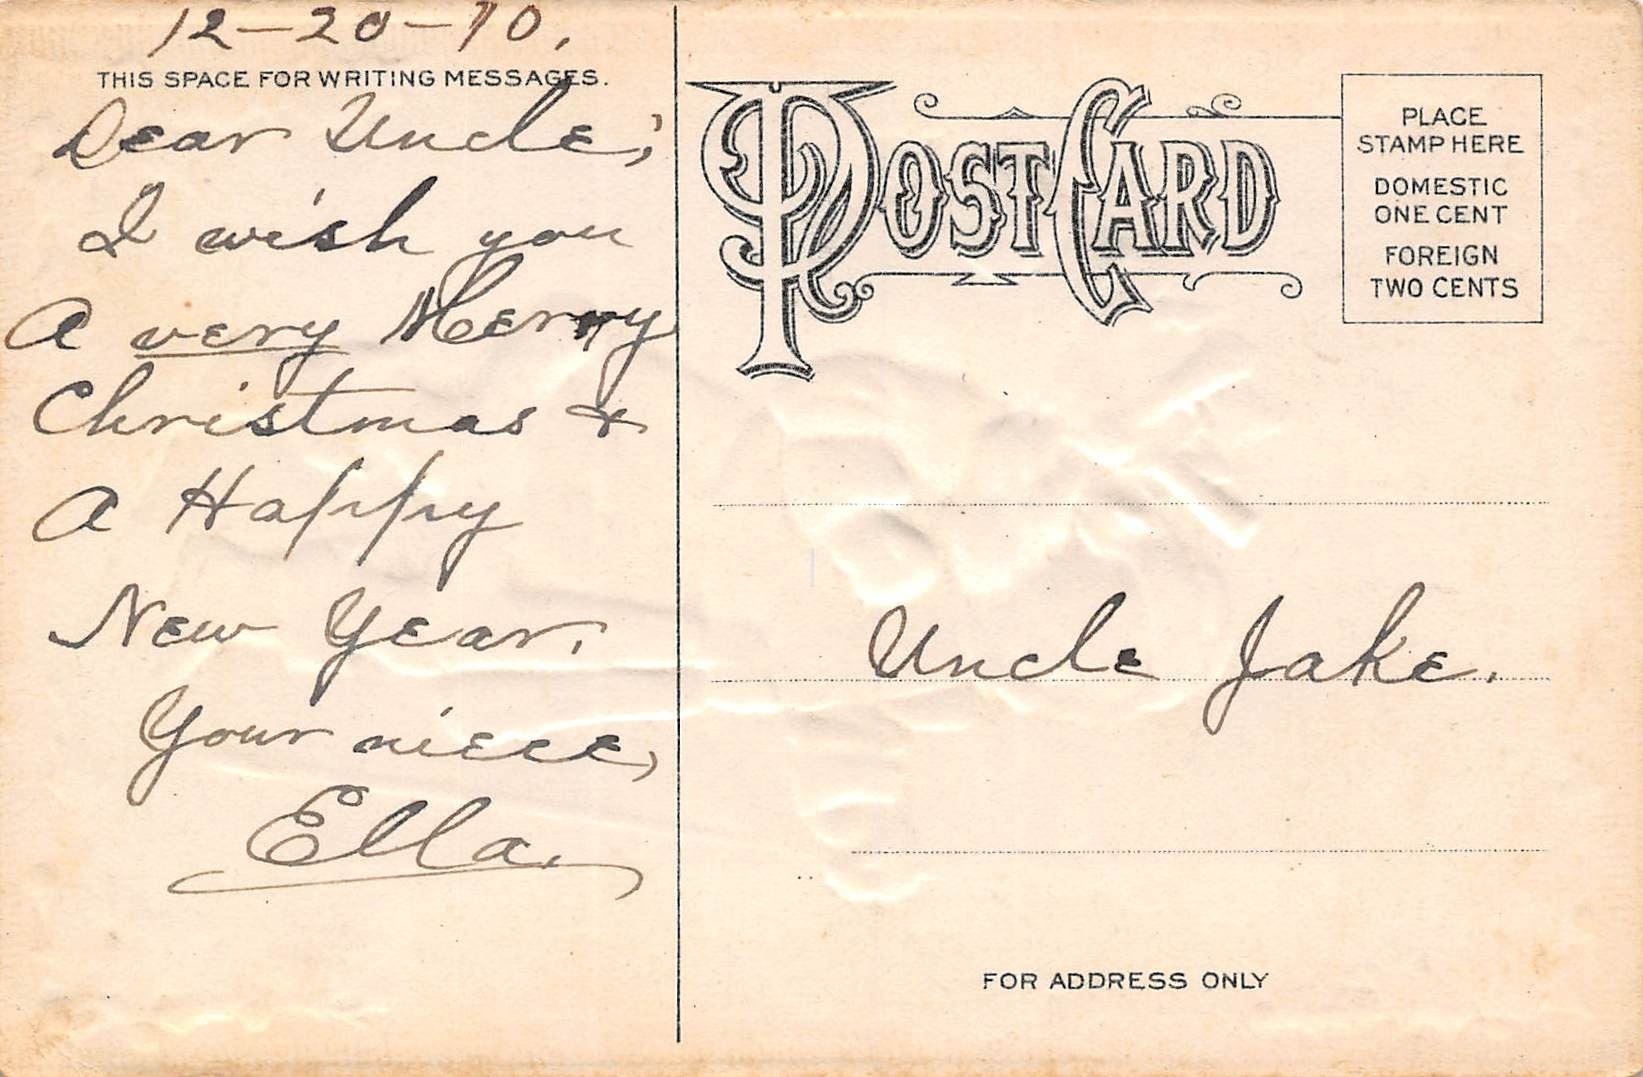 12-20-10.
THIS SPACE FOR WRITING MESSAGES.
Dear Uncle;
I wish you
a very Merry
Christmas &
a Happy
New Year.
Your niece,
Ella.
POST CARD
PLACE
STAMP HERE
DOMESTIC
ONE CENT
FOREIGN
TWO CENTS
Uncle Jake.
FOR ADDRESS ONLY